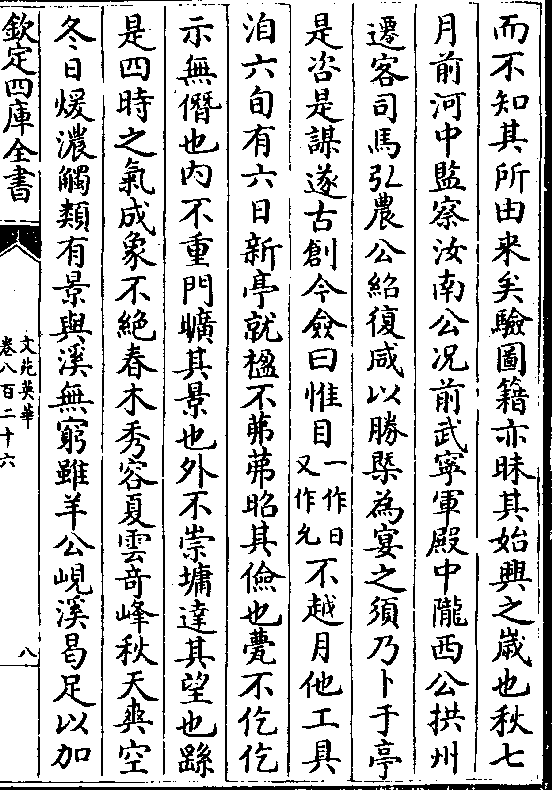 而不知其所由来矣驗圖籍亦昧其始興之歲也秋七
月前河中監察汝南公況前武寧軍殿中隴西公拱州
遷客司馬弘農公紹復咸以勝槩為宴之須乃卜于亭
是咨是謀遂古創今僉曰惟目一作日又作允不越月他工具
洎六旬有六日新亭就楹不茀茀昭其儉也甍不仡仡
示無僭也内不重門曠其景也外不崇墉達其望也繇
是四時之氣成象不絶春木秀容夏雲竒峰秋天爽空
冬日煖濃觸類有景與溪無窮雖羊公峴溪曷足以加
欽定四庫全書
文苑英華
卷八百二十六
八